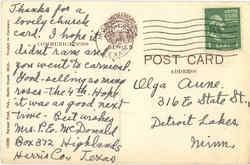 Thanks for a
lovely church
card. I hope it
didn't rain and
you went to carnival.
Good-selling as many
roses the 4th. Hope
it was as good next
time - Best wishes
Mrs. P.E. McDonald
Box 372 Highlands
Harris Co, Texas
COMMUNICATIONS
POST CARD
ADDRESS
Olga Aune.
316 E State St.
Detroit Lakes
Minn.